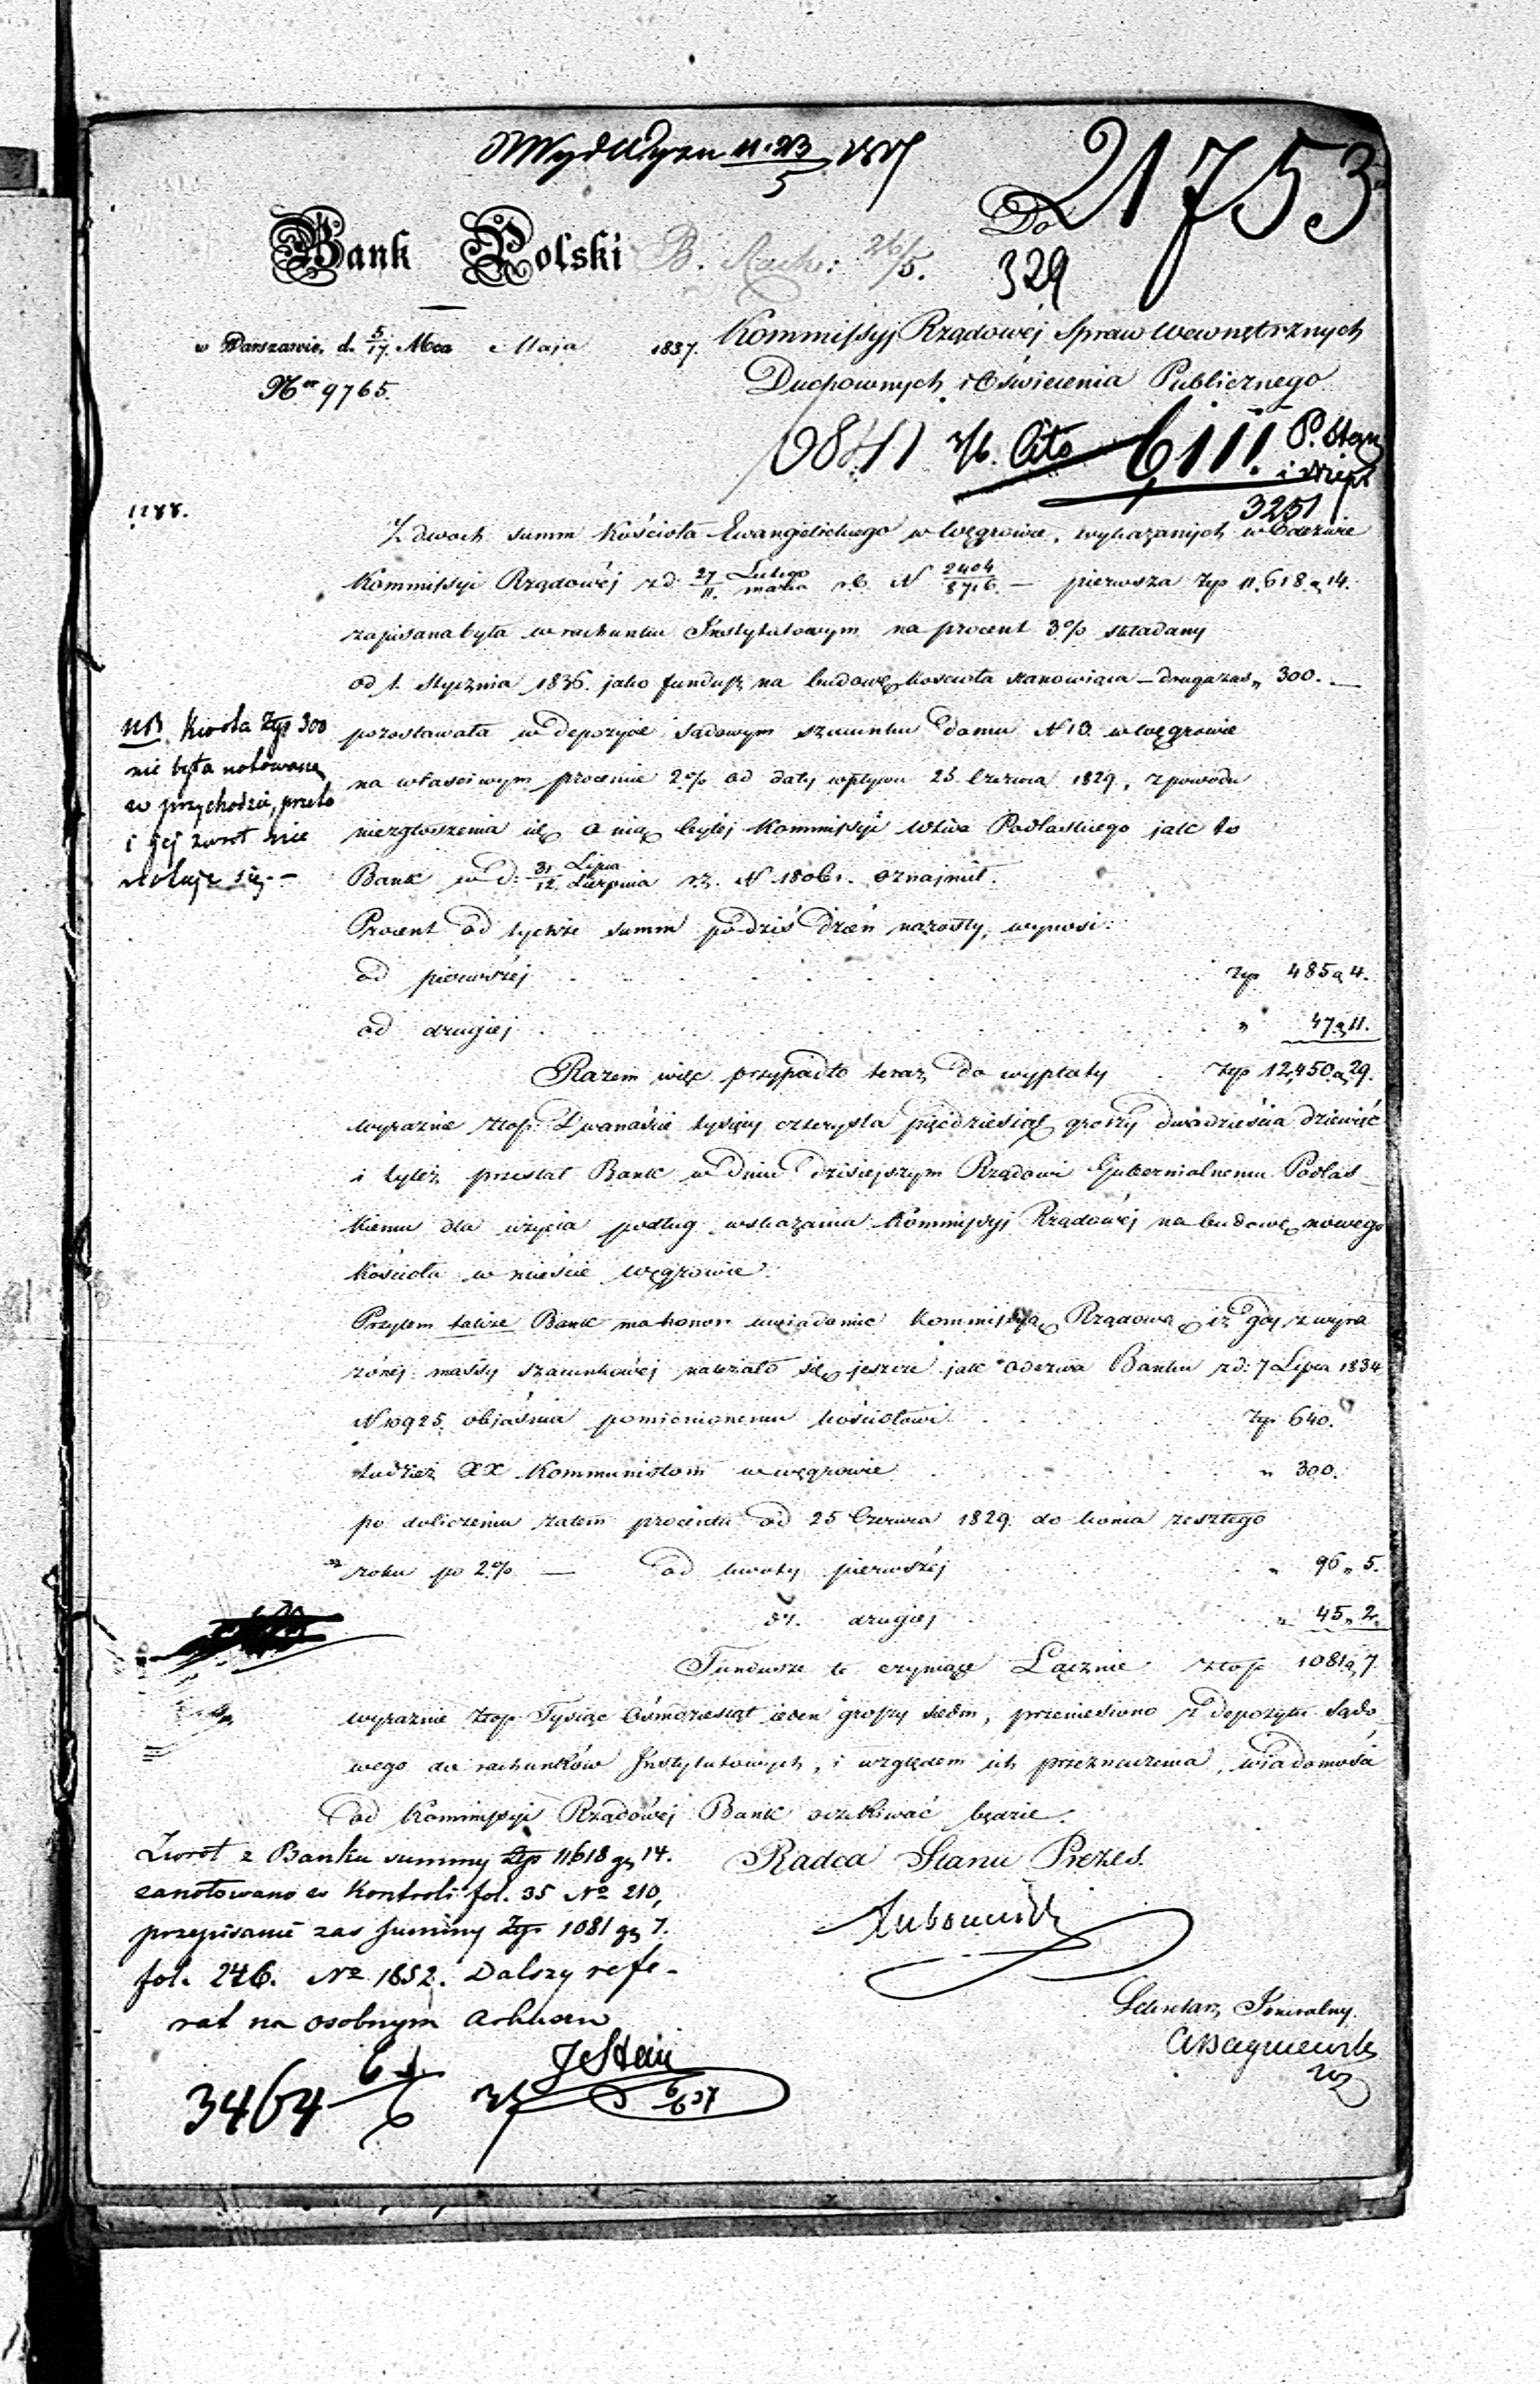 11/23 5 1837
21753
Bank Polski
B. Rach: 26/5.
Do
329
w Warszawie, d. 5/17. Mca Maja 1837.
Kommissyi Rządowej Spraw Wewnętrznych
Nr 9765.
Duchownych i Oświecenia Publicznego
Cito 6111. P. Stein
3251
1288.
Z dwoch summ Kościoła Ewangelickiego w Węgrowie, wykazanych w Odezwie
Kommissyi Rządowéj z d. 27 Lutego/11. marca r.b. N 2404/8716. — pierwsza Złp 11,618 g 14.
zapisana była w rachunku Instytutowym na procent 3% składany
od 1. Stycznia 1836. jako fundusz na budowę kościoła stanowiąca — druga zaś „ 300. —
pozostawała w depozycie sądowym szacunku domu N 13. w Węgrowie
na właściwym procencie 2% od daty wpływu 25 Czerwca 1829, z powodu
niezgłoszenia się o nią byłéj Kommissyi Wdztwa Podlaskiego jak to
Bank w d. 31 Lipca/12. Sierpnia r.z. N 18061. oznajmił.
NB. Kwota Złp 300
nie była notowaną
w przychodzie, przeto
i jej zwrot nie
notuje się. —
Procent od tychże summ po dziś dzień narosły, wynosi:
od pierwszéj Złp 485 g 4.
od drugiéj „ 47 g 11.
Razem więc przypadło teraz do wypłaty Złp 12,450 g 29.
wyraznie złop. Dwanaście tysięcy czterysta pięćdziesiąt groszy dwadzieścia dziewięć
i tyleż przesłał Bank w dniu dzisiejszym Rządowi Gubernialnemu Podlas-
kiemu dla użycia podług wskazania Kommissyi Rządowéj na budowę nowego
Kościoła w mieście Węgrowie.
Przytem także Bank ma honor uwiadomić Kommissyą Rządową, iż gdy z wyra
żonéj massy szacunkowéj należało się jeszcze jak odezwa Banku z d. 7 Lipca 1834
N 10925. objaśnia pomienionemu kościołowi Złp 640.
tudzież XX Kommunistom w Węgrowie „ 300.
po doliczeniu zatem procentu od 25 Czerwca 1829. do końca zeszłego
roku po 2% — od kwoty pierwszéj „ 96 „ 5.
dt. drugiéj „ 45 „ 2.
Fundusze te czyniące Łącznie złop 1081 g 7.
wyraznie złop. Tysiąc Ośmdziesiąt jeden groszy siedm, przeniesiono z depozytu sądo-
wego do rachunków Instytutowych, i względem ich przeznaczenia, wiadomości
od Kommissyi Rządowéj Bank oczekiwać będzie.
Radca Stanu Prezes.
Lubowidzki
Zwrot z Banku summy Złp 11618 g 14.
zanotowano w Kontroli fol. 35 No 210,
przepisanie zas summy Złp 1081 g 7.
fol. 246. No 1852. Dalszy refe-
rat na osobnym arkuszu
JStein
6/6 37
3464
Sekretarz Jeneralny.